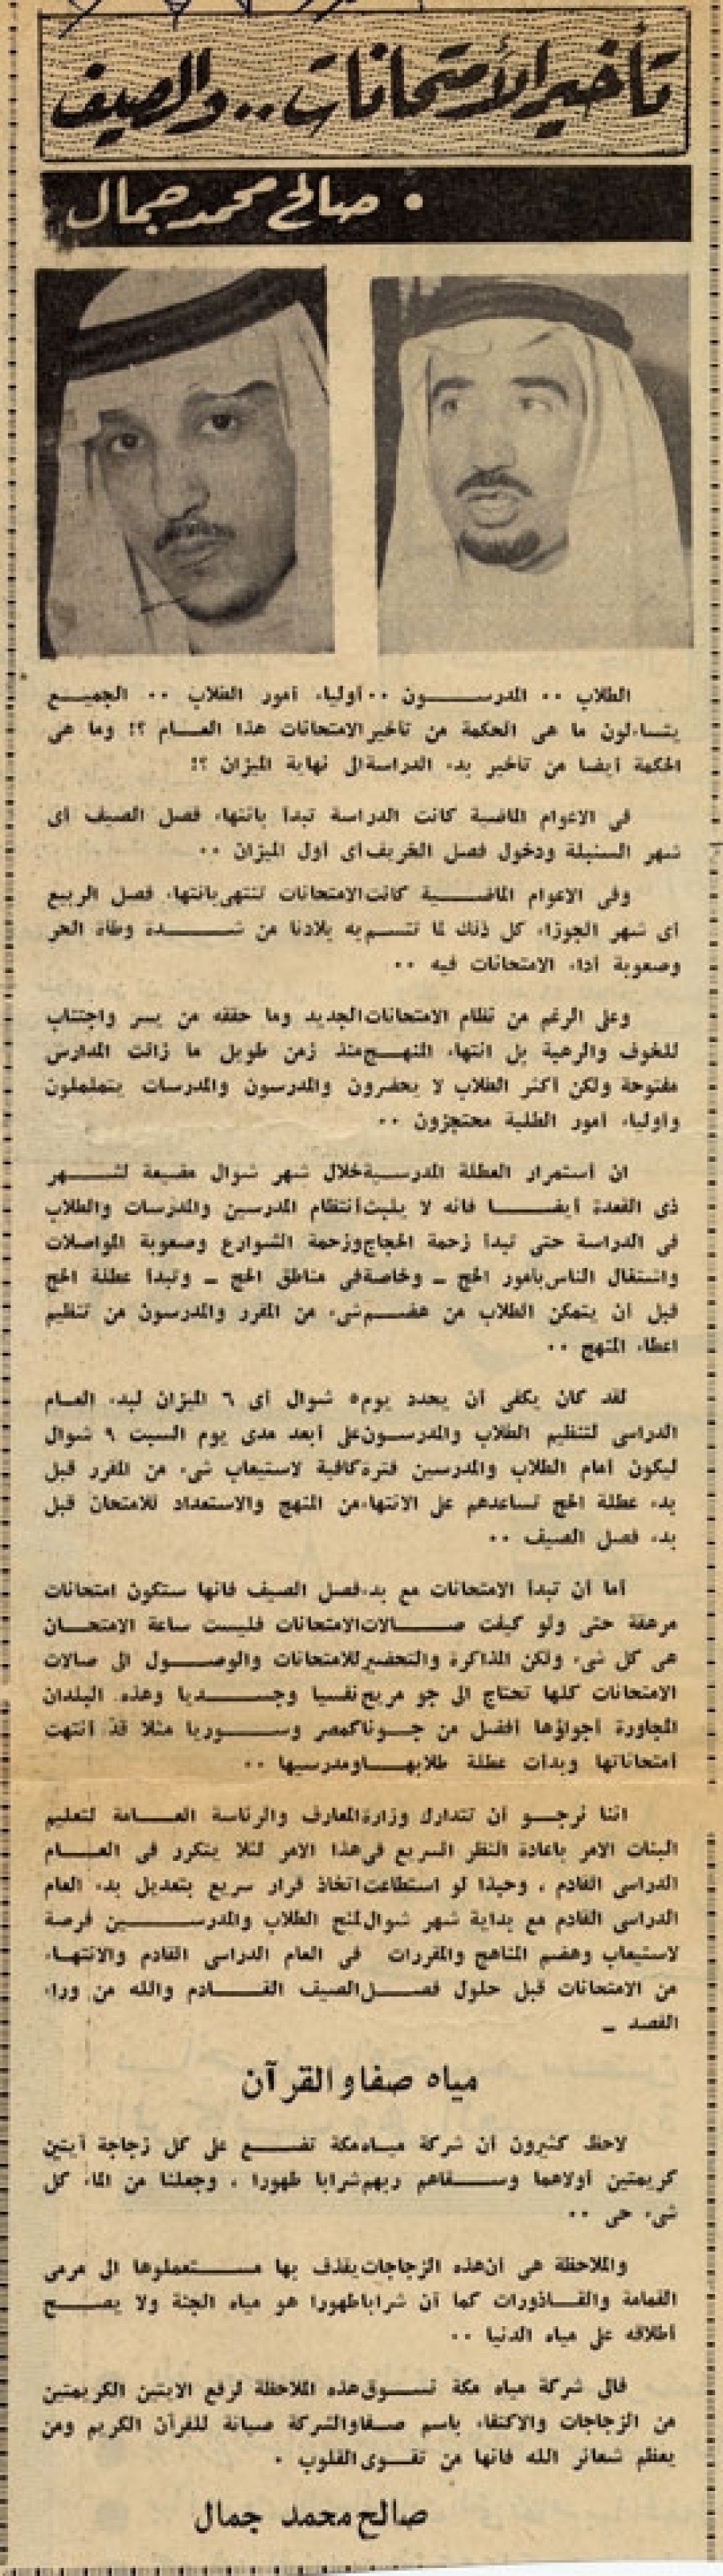 تأخير الأمتحانات.. والصيف
• صالح محمد جمال
الطلاب ·· المدرســـون ·· أولياء أمور الطلاب ·· الجميـــع
يتساءلون ما هى الحكمة من تأخير الامتحانات هذا العـــام ؟! وما هى
الحكمة أيضا من تأخير بدء الدراسة الى نهاية الميزان ؟!
فى الاعوام الماضية كانت الدراسة تبدأ بانتهاء فصل الصيف أى
شهر السنبلة ودخول فصل الخريف أى أول الميزان ··
وفى الاعوام الماضـــية كانت الامتحانات تنتهى بانتهاء فصل الربيع
أى شهر الجوزاء كل ذلك لما تتســم به بلادنا من شـــــدة وطأة الحر
وصعوبة أداء الامتحانات فيه ··
وعلى الرغم من نظام الامتحانات الجديد وما حققه من يسر واجتناب
للخوف والرهبة بل انتهاء المنهـــج منذ زمن طويل ما زالت المدارس
مفتوحة ولكن أكثر الطلاب لا يحضرون والمدرسون والمدرسات يتململون
وأولياء أمور الطلبة محتجزون ··
ان أستمرار العطلة المدرســية خلال شهر شوال مضيعة لشـــهر
ذى القعدة أيضـــــا فانه لا يلبث أنتظام المدرسين والمدرسات والطلاب
فى الدراسة حتى تبدأ زحمة الحجاج وزحمة الشوارع وصعوبة المواصلات
واشتغال الناس بأمور الحج ــ وخاصة فى مناطق الحج ــ وتبدأ عطلة الحج
قبل أن يتمكن الطلاب من هضـــم شىء من المقرر والمدرسون من تنظيم
اعطاء المنهج ··
لقد كان يكفى أن يحدد يوم ٥ شوال أى ٦ الميزان لبدء العـــام
الدراسى لتنظيم الطلاب والمدرســون على أبعد مدى يوم السبت ٩ شوال
ليكون أمام الطلاب والمدرسين فترة كافية لاستيعاب شىء من المقرر قبل
بدء عطلة الحج تساعدهم على الانتهاء من المنهج والاستعداد للامتحان قبل
بدء فصل الصيف ··
أما أن تبدأ الامتحانات مع بدء فصل الصيف فانها ستكون امتحانات
مرهقة حتى ولو كيفت صــــالات الامتحانات فليست ساعة الامتحـــان
هى كل شىء ولكن المذاكرة والتحضير للامتحانات والوصــول الى صالات
الامتحانات كلها تحتاج الى جو مريح نفسيا وجـــــديا وهذه البلدان
المجاورة أجواؤها أفضل من جـــونا كمصر وســـوريا مثلا قد أنتهت
أمتحاناتها وبدأت عطلة طلابهـــا ومدرسيها ··
اننا نرجــو أن تتدارك وزارة المعارف والرئاسة العـــامة لتعليم
البنات الامر باعادة النظر السريع فى هذا الامر لئلا يتكرر فى العـــام
الدراسى القادم ، وحبذا لو استطاعت اتخاذ قرار سريع بتعديل بدء العام
الدراسى القادم مع بداية شهر شوال لمنح الطلاب والمدرســـين فرصة
لاستيعاب وهضم المناهج والمقررات فى العام الدراسى القادم والانتهـــاء
من الامتحانات قبل حلول فصـــل الصيف القـــادم والله من وراء
القصد ــ
مياه صفا والقرآن
لاحظ كثيرون أن شركة ميـاه مكة تضـــع على كل زجاجة آيتين
كريمتين أولاهما وســـقاهم ربهم شرابا طهورا ، وجعلنا من الماء كل
شىء حى ··
والملاحظة هى أن هذه الزجاجات يقذف بها مســـتعملوها الى مرمى
القمامة والقـــاذورات كما أن شرابا طهورا هو مياه الجنة ولا يصـــح
أطلاقه على مياه الدنيا ··
فالى شركة مياه مكة نســوق هذه الملاحظة لرفع الايتين الكريمتين
من الزجاجات والاكتفاء باسم صــفا والشركة صيانة للقرآن الكريم ومن
يعظم شعائر الله فانها من تقــوى القلوب ·
صالح محمد جمال